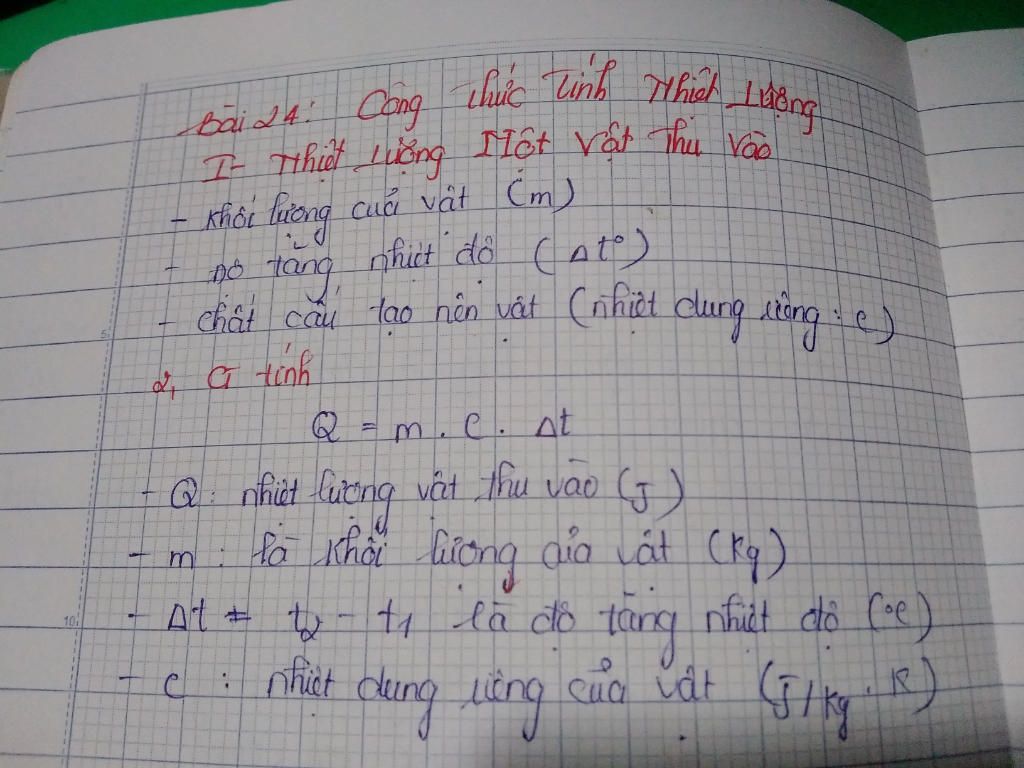 Bài 24: Công Thức Tính Nhiệt Lượng
I- Nhiệt Lượng Một Vật Thu Vào
- Khối lượng của vật (m)
- Độ tăng nhiệt độ (Δt°)
- chất cấu tạo nên vật (nhiệt dung riêng: c)
2, CT tính
Q = m . c . Δt
- Q: nhiệt lượng vật thu vào (J)
- m : là khối lượng của vật (Kg)
- Δt = t₂ - t₁ là độ tăng nhiệt độ (°c)
- c : nhiệt dung riêng của vật (J/kg.K)
5
10